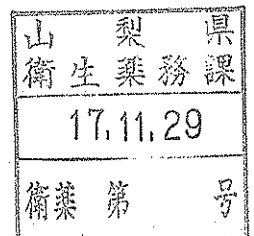 山梨県
衛生薬務課
17.11.29
衛薬第 号